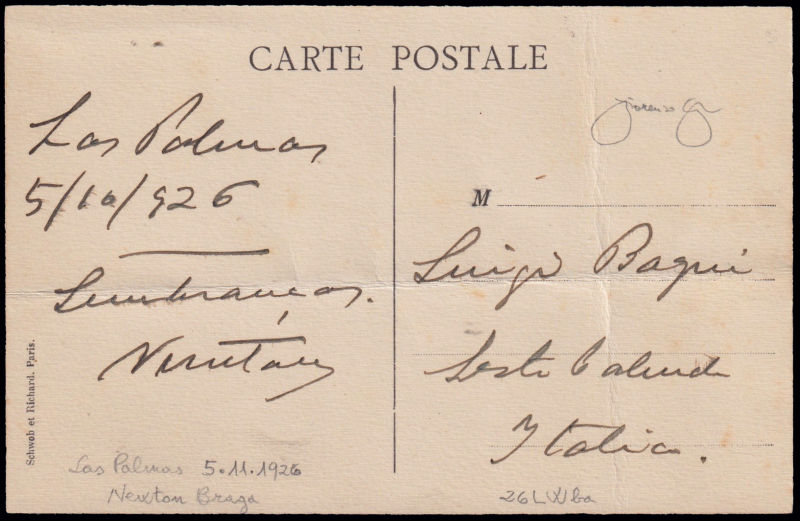 CARTE POSTALE
Las Palmas
5/10/926
Lembranças.
Newton
M
Luigi Bagui
Sesto Calende
Italia.
Schwob et Richard. Paris.
Las Palmas 5.11.1926
Newton Braga